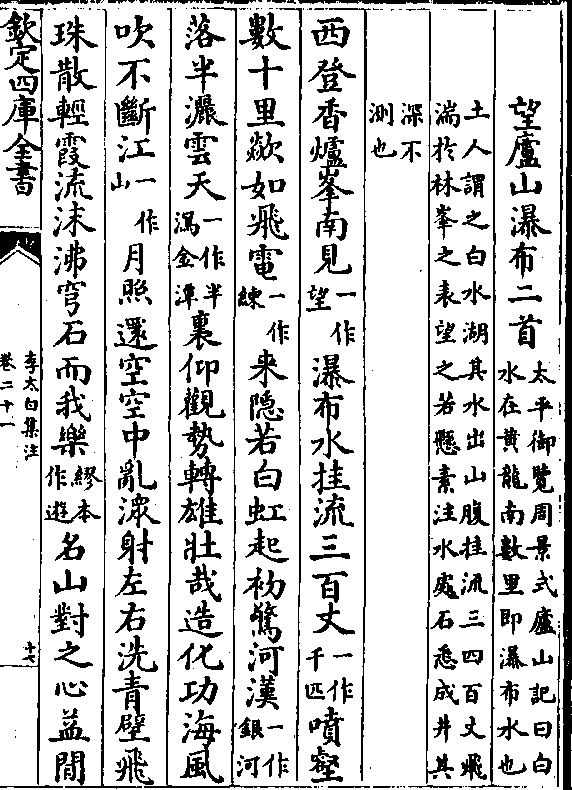 望廬山瀑布二首太平御覽周景式廬山記曰白
水在黄龍南數里即瀑布水也
土人謂之白水湖其水出山腹挂流三四百丈飛
湍於林峯之表望之若懸素注水處石悉成井其
深不
測也
西登香爐峯南見一作望瀑布水挂流三百丈一作千匹噴壑
數十里歘如飛電一作練来隐若白虹起初驚河漢一作銀河
落半灑雲天一作半瀉金潭裏仰觀勢轉雄壯哉造化功海風
吹不斷江一作山月照還空空中亂潈射左右洗青壁飛
珠散輕霞流沫沸穹石而我樂繆本作遊名山對之心益閒
欽定四庫全書
李太白集注
卷二十一
十七